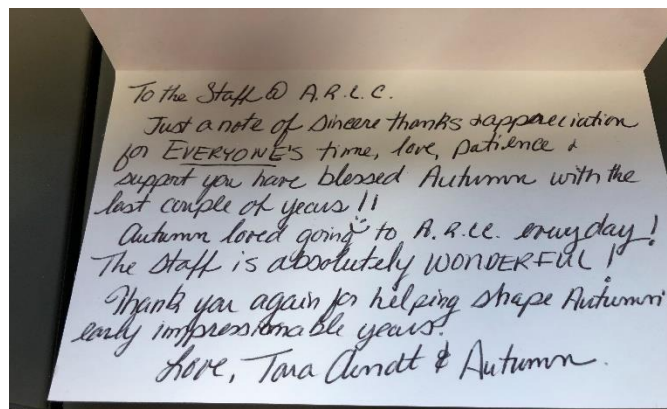 To the Staff @ A.R.L.C.
Just a note of sincere thanks & appreciation
for EVERYONE'S time, love, patience &
support you have blessed Autumn with the
last couple of years!!
Autumn loved going to A.R.L.C. everyday!
The Staff is absolutely WONDERFUL!
Thank you again for helping shape Autumn's
early impressionable years!
Love, Tara Arndt & Autumn.